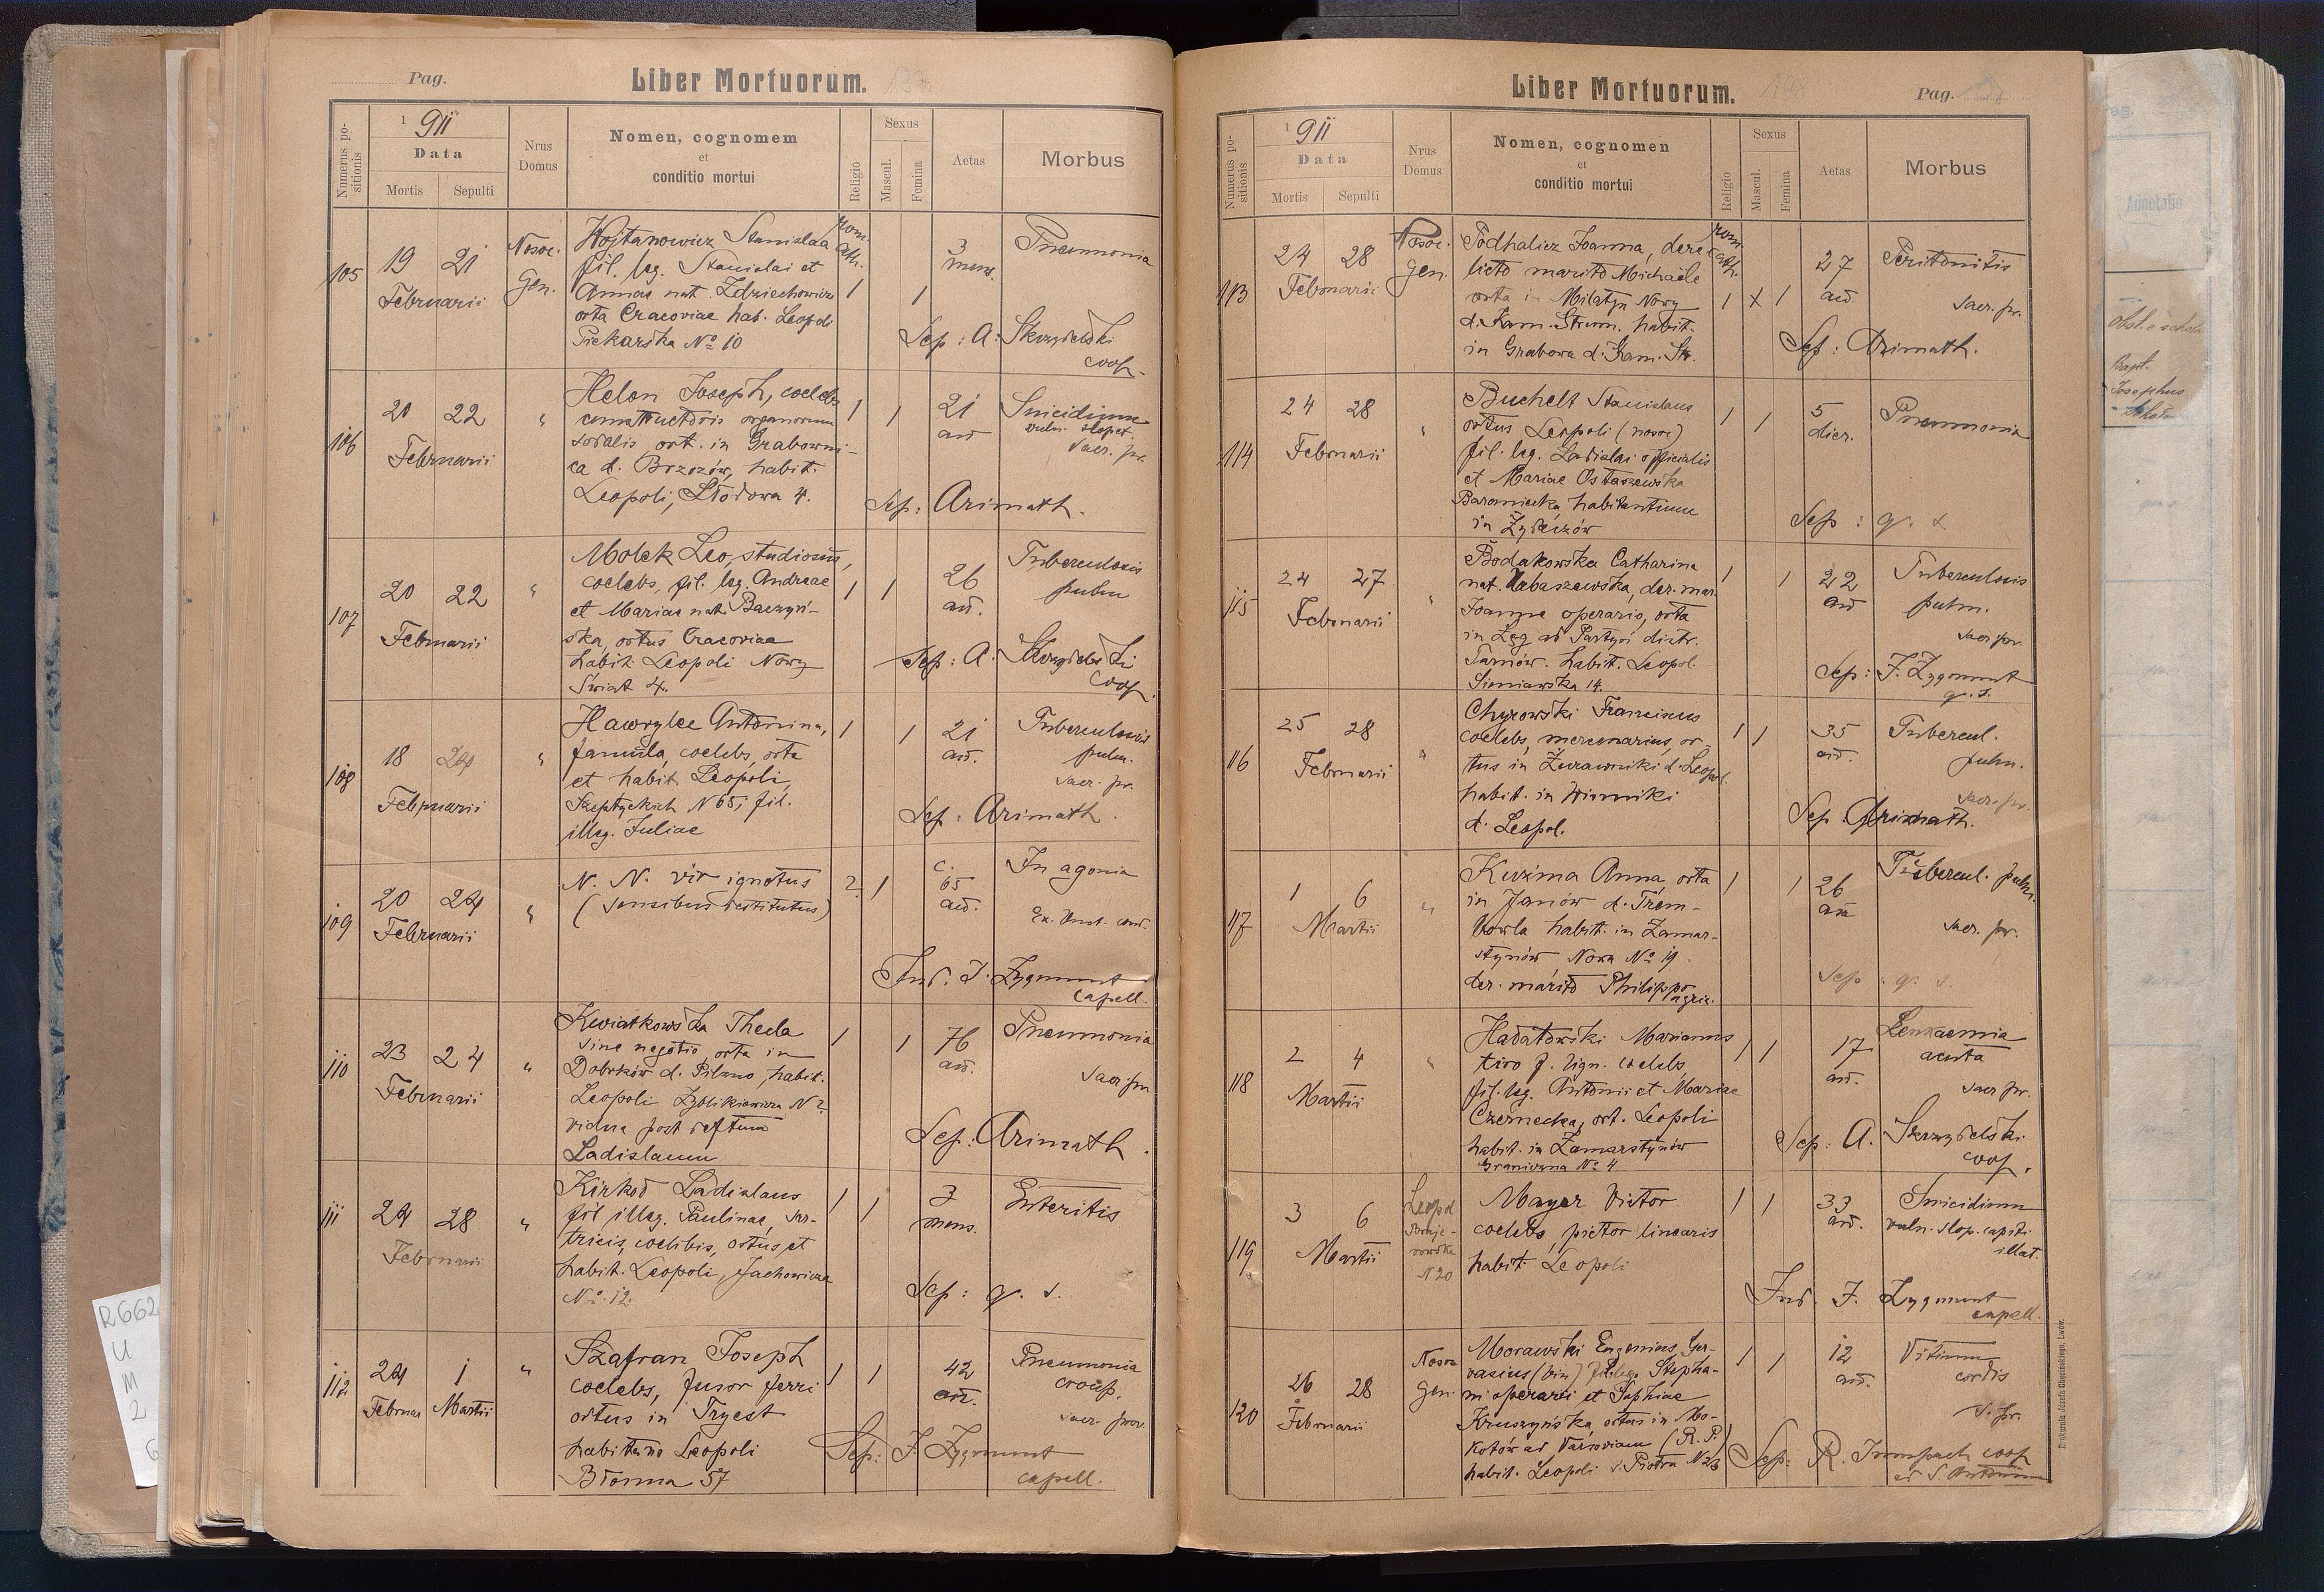 Pag.
Liber Mortuorum.
Numerus positionis
1911
Data
Mortis
Sepulti
Nrus Domus
Nomen, cognomem
et
conditio mortui
Religio
Sexus
Mascul.
Femina
Aetas
Morbus
105
19 21
Februarii
Nosoc.
Gen.
Wojtanowicz Stanislaa
fil. leg. Stanislai et
Annae nat. Zdziechowicz
orta Cracoviae hab. Leopoli
Piekarska No 10
rom.
cath.
1
1
3
mens.
Pneumonia
Sep: A: Skrzydelski
coop.
106
20 22
Februarii
"
Helon Joseph, coelebs
constructoris organorum
sodalis ort. in Grabowni-
ca d. Brzozów, habit.
Leopoli, Słodowa 4.
1
1
21
an
Suicidium
vuln. slopet.
sacr. pr.
Sep: Arimath.
107
20 22
Februarii
"
Molek Leo, studiosus,
coelebs, fil. leg. Andreae
et Mariae nat. Baczyń-
ska, ortus Cracoviae
habit. Leopoli Nowy
Świat 4.
1
1
26
an.
Tuberculosis
pulm
Sep: A: Skrzydelski
coop.
108
18 24
Februarii
"
Hawrylce Antonina,
famula, coelebs, orta
et habit. Leopoli,
Szeptyckich N 65, fil.
illeg. Juliae
1
1
21
an.
Tuberculosis
pulm.
sacr. pr.
Sep: Arimath.
109
20 24
Februarii
"
N. N. vir ignotus
(sensibus destitutus)
?
1
c.
65
an.
In agonia
Ex. Unct. cond.
Ind. J. Zygmunt
capell.
110
23 24
Februarii
"
Kwiatkowska Thecla
sine negotio, orta in
Dobrków d. Pilzno, habit.
Leopoli Zyblikiewicza N 2.
vidua post defctum
Ladislaum
1
1
76
an.
Pneumonia
sacr. pr.
Sep: Arimath.
111
24 28
Februarii
"
Kirkod Ladislaus
fil illeg. Paulinae, sar-
tricis, coelibis, ortus et
habit. Leopoli, Jachowicza
No 12
1
1
3
mens.
Enteritis
Sep: q. s.
112
24 1
Februar Martii
"
Szafran Joseph
coelebs, fusor ferri
ortus in Tryest
habitans Leopoli
Błonna 57
1
1
42
an.
Pneumonia
croup.
sacr. prov.
Sep: J. Zygmunt
capell.
Liber Mortuorum.
198
Pag.
Numerus positionis
1911
Data
Mortis
Sepulti
Nrus Domus
Nomen, cognomen
et
conditio mortui
Religio
Sexus
Mascul.
Femina
Aetas
Morbus
113
24 28
Februarii
Nosoc.
Gen.
Podhalicz Joanna, dere-
licto marito Michaele
orta in Milatyn Nowy
d. Kam. Strum. habit.
in Grabowa d. Kam. Str.
rom.
cath.
1 X 1
27
an.
Peritonitis
sacr. pr.
Sep: Arimath.
114
24 28
Februarii
"
Buchelt Stanislaus
ortus Leopoli (nosoc)
fil. leg. Ladislai officialis
et Mariae Ostaszewska
habitantium
in Żydaczów
1
1
5
dier.
Pneumonia
Sep: q. s
115
24 27
Februarii
"
Bodakowska Catharina
nat. Łabaszewska, der. mar.
Joanne operario, orta
in Łęg ad Partyń distr.
Tarnów. habit. Leopol.
Sieniawska 14.
1
1
22
an
Tuberculosis
pulm.
sacr. pr.
Sep: J. Zygmunt
q. s.
116
25 28
Februarii
"
Chyrowski Franciscus
coelebs, mercenarius, or-
tus in Żurawniki d. Leopol.
habit. in Winniki
d. Leopol.
1
1
35
an.
Tubercul.
pulm.
sacr. pr.
Sep. Arimath.
117
1 6
Martii
"
Kuzma Anna, orta
in Janów d. Trem-
bowla habit. in Zamar-
stynów Nowa No 19
der. marito Philippo
agric.
1
1
26
an
Tubercul. pulm.
sacr. pr.
Sep: q. s.
118
2 4
Martii
"
Hadatowski Marianus
tiro f. lign. coelebs,
fil. leg. Antonii et Mariae
Czernecka, ort. Leopoli
habit. in Zamarstynów
Graniczna No 4
1
1
17
an.
Leukaemia
acuta
sacr. pr.
Sep: A. Skrzydelski
coop.
119
3 6
Martii
Leopol
N 20
Mayer Victor
coelebs, pictor linearis
habit. Leopoli
1
1
33
an.
Suicidium
vuln. slop. capiti
illat.
Ind. J. Zygmunt
capell.
120
26 28
Februarii
Nosoc
Gen.
Morawski Eugenius Ger-
vasius (bin) fil. leg. Stepha-
ni operarii et Sophiae
Kruszyńska, ortus in Mo-
kotów ad Varsoviam (R. P.)
habit. Leopoli S. Piotra N 23
1
1
12
an.
Vitium
cordis
s. pr.
Sep: R. coop
ad S. Antonium
Drukarnia Józefa Chęcińskiego, Lwów.
Adnotatio
Bapt.
Josephus
R662
U
M
2
6